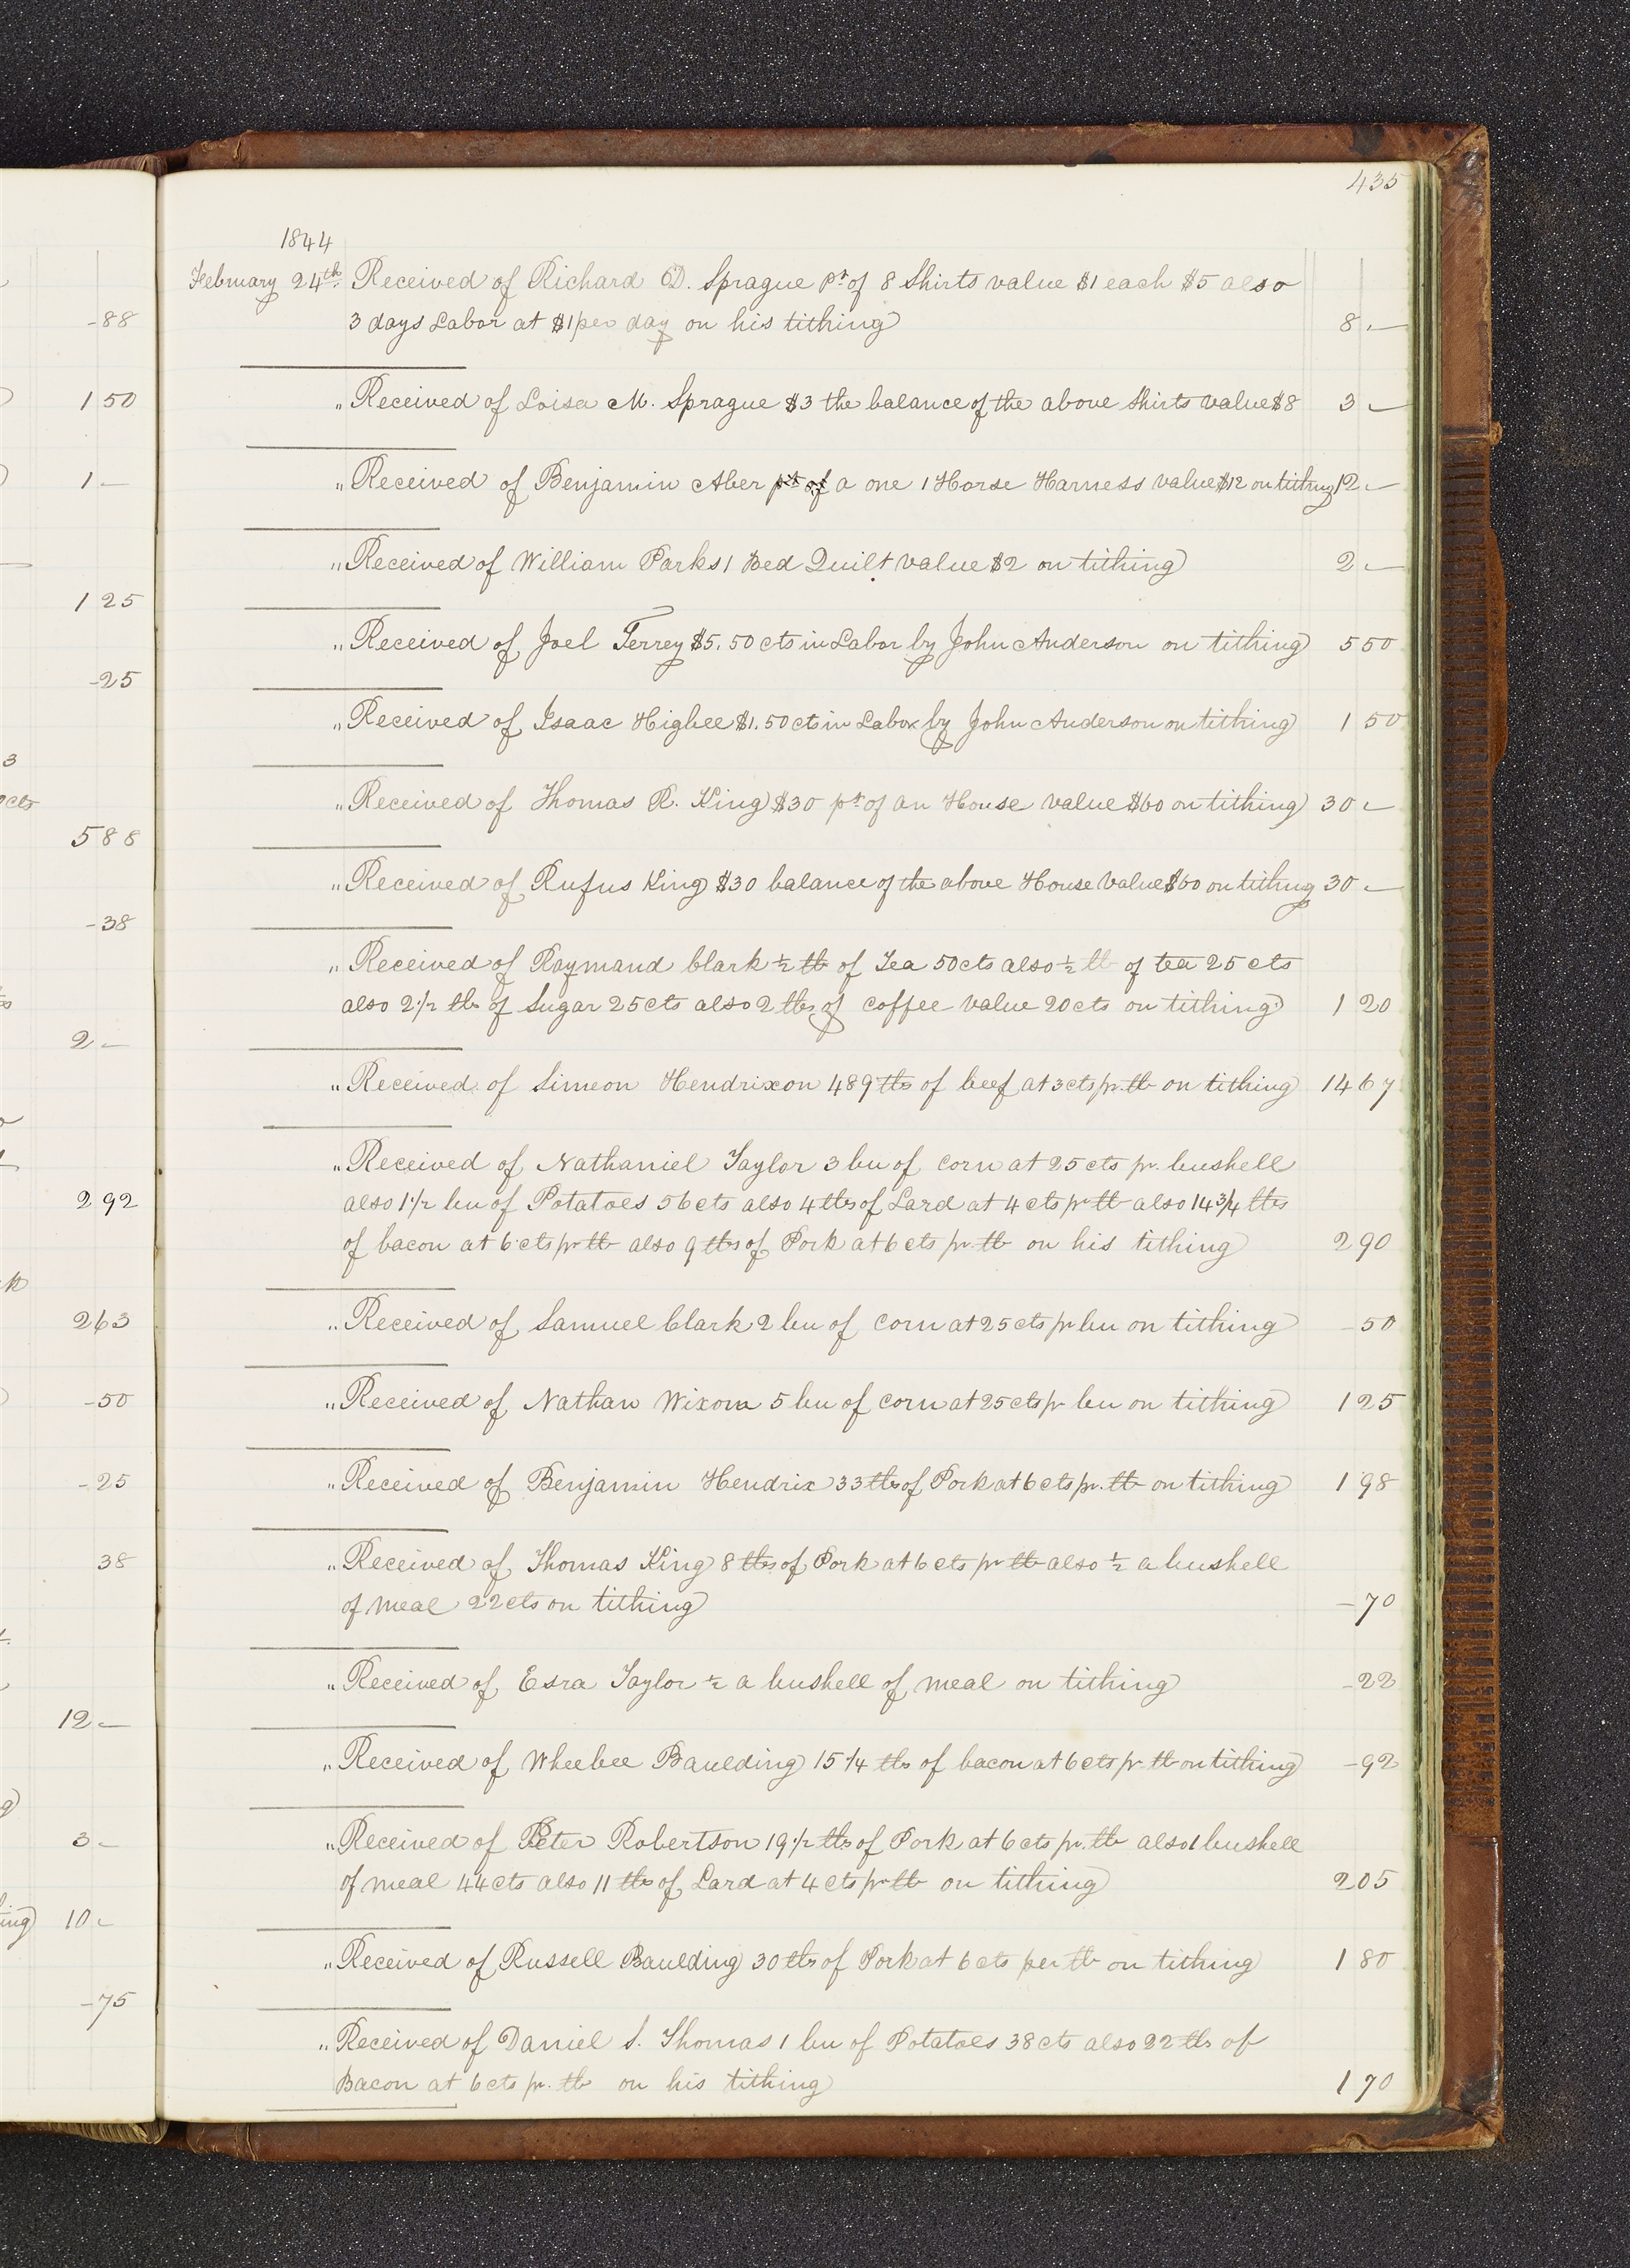 435
1844
February 24th Received of Richard D. Sprague pt of 8 Shirts value $1 each $5 also
3 days Labor at $1 per day on his tithing 8 —
" Received of Loisa M. Sprague $3 the balance of the above Shirts value $8 3 —
" Received of Benjamin Aber pt of a one 1 Horse Harness value $12 on tithing 12 —
" Received of William Parks 1 Bed Quilt value $2 on tithing 2 —
" Received of Joel Terrey $5.50 cts in Labor by John Anderson on tithing 5 50
" Received of Isaac Higbee $1.50 cts in Labor by John Anderson on tithing 1 50
" Received of Thomas R. King $30 pt of an House value $60 on tithing 30 —
" Received of Rufus King $30 balance of the above House value $60 on tithing 30 —
" Received of Raymand Clark ½ lb of Tea 50 cts also ½ lb of tea 25 cts
also 2 1/2 lbs of Sugar 25 cts also 2 lbs of coffee value 20 cts on tithing 1 20
" Received of Simeon Hendrixon 489 lbs of beef at 3 cts pr. lb on tithing 14 67
" Received of Nathaniel Taylor 3 bu of corn at 25 cts pr. bushell
also 1 1/2 bu of Potatoes 56 cts also 4 lbs of Lard at 4 cts pr lb also 14 3/4 lbs
of bacon at 6 cts pr lb also 9 lbs of Pork at 6 cts pr lb on his tithing 2 90
" Received of Samuel Clark 2 bu of corn at 25 cts pr bu on tithing – 50
" Received of Nathan Wixom 5 bu of corn at 25 cts pr bu on tithing 1 25
" Received of Benjamin Hendrix 33 lbs of Pork at 6 cts pr. lb on tithing 1 98
" Received of Thomas King 8 lbs of Pork at 6 cts pr lb also ½ a bushell
of meal 22 cts on tithing – 70
" Received of Esra Taylor ½ a bushell of meal on tithing – 22
" Received of Wheebee Baulding 15 1/4 lbs of bacon at 6 cts pr lb on tithing – 92
" Received of Peter Robertson 19 1/2 lbs of Pork at 6 cts pr. lb also 1 bushell
of meal 44 cts also 11 lbs of Lard at 4 cts pr lb on tithing 2 05
" Received of Russell Baulding 30 lbs of Pork at 6 cts per lb on tithing 1 80
" Received of Daniel S. Thomas 1 bu of Potatoes 38 cts also 22 lbs of
Bacon at 6 cts pr. lb on his tithing 1 70
– 88
1 50
1 –
1 25
– 25
3
cts
5 88
– 38
2 –
2 92
2 63
– 50
– 25
38
12 –
3 –
ing 10 –
– 75